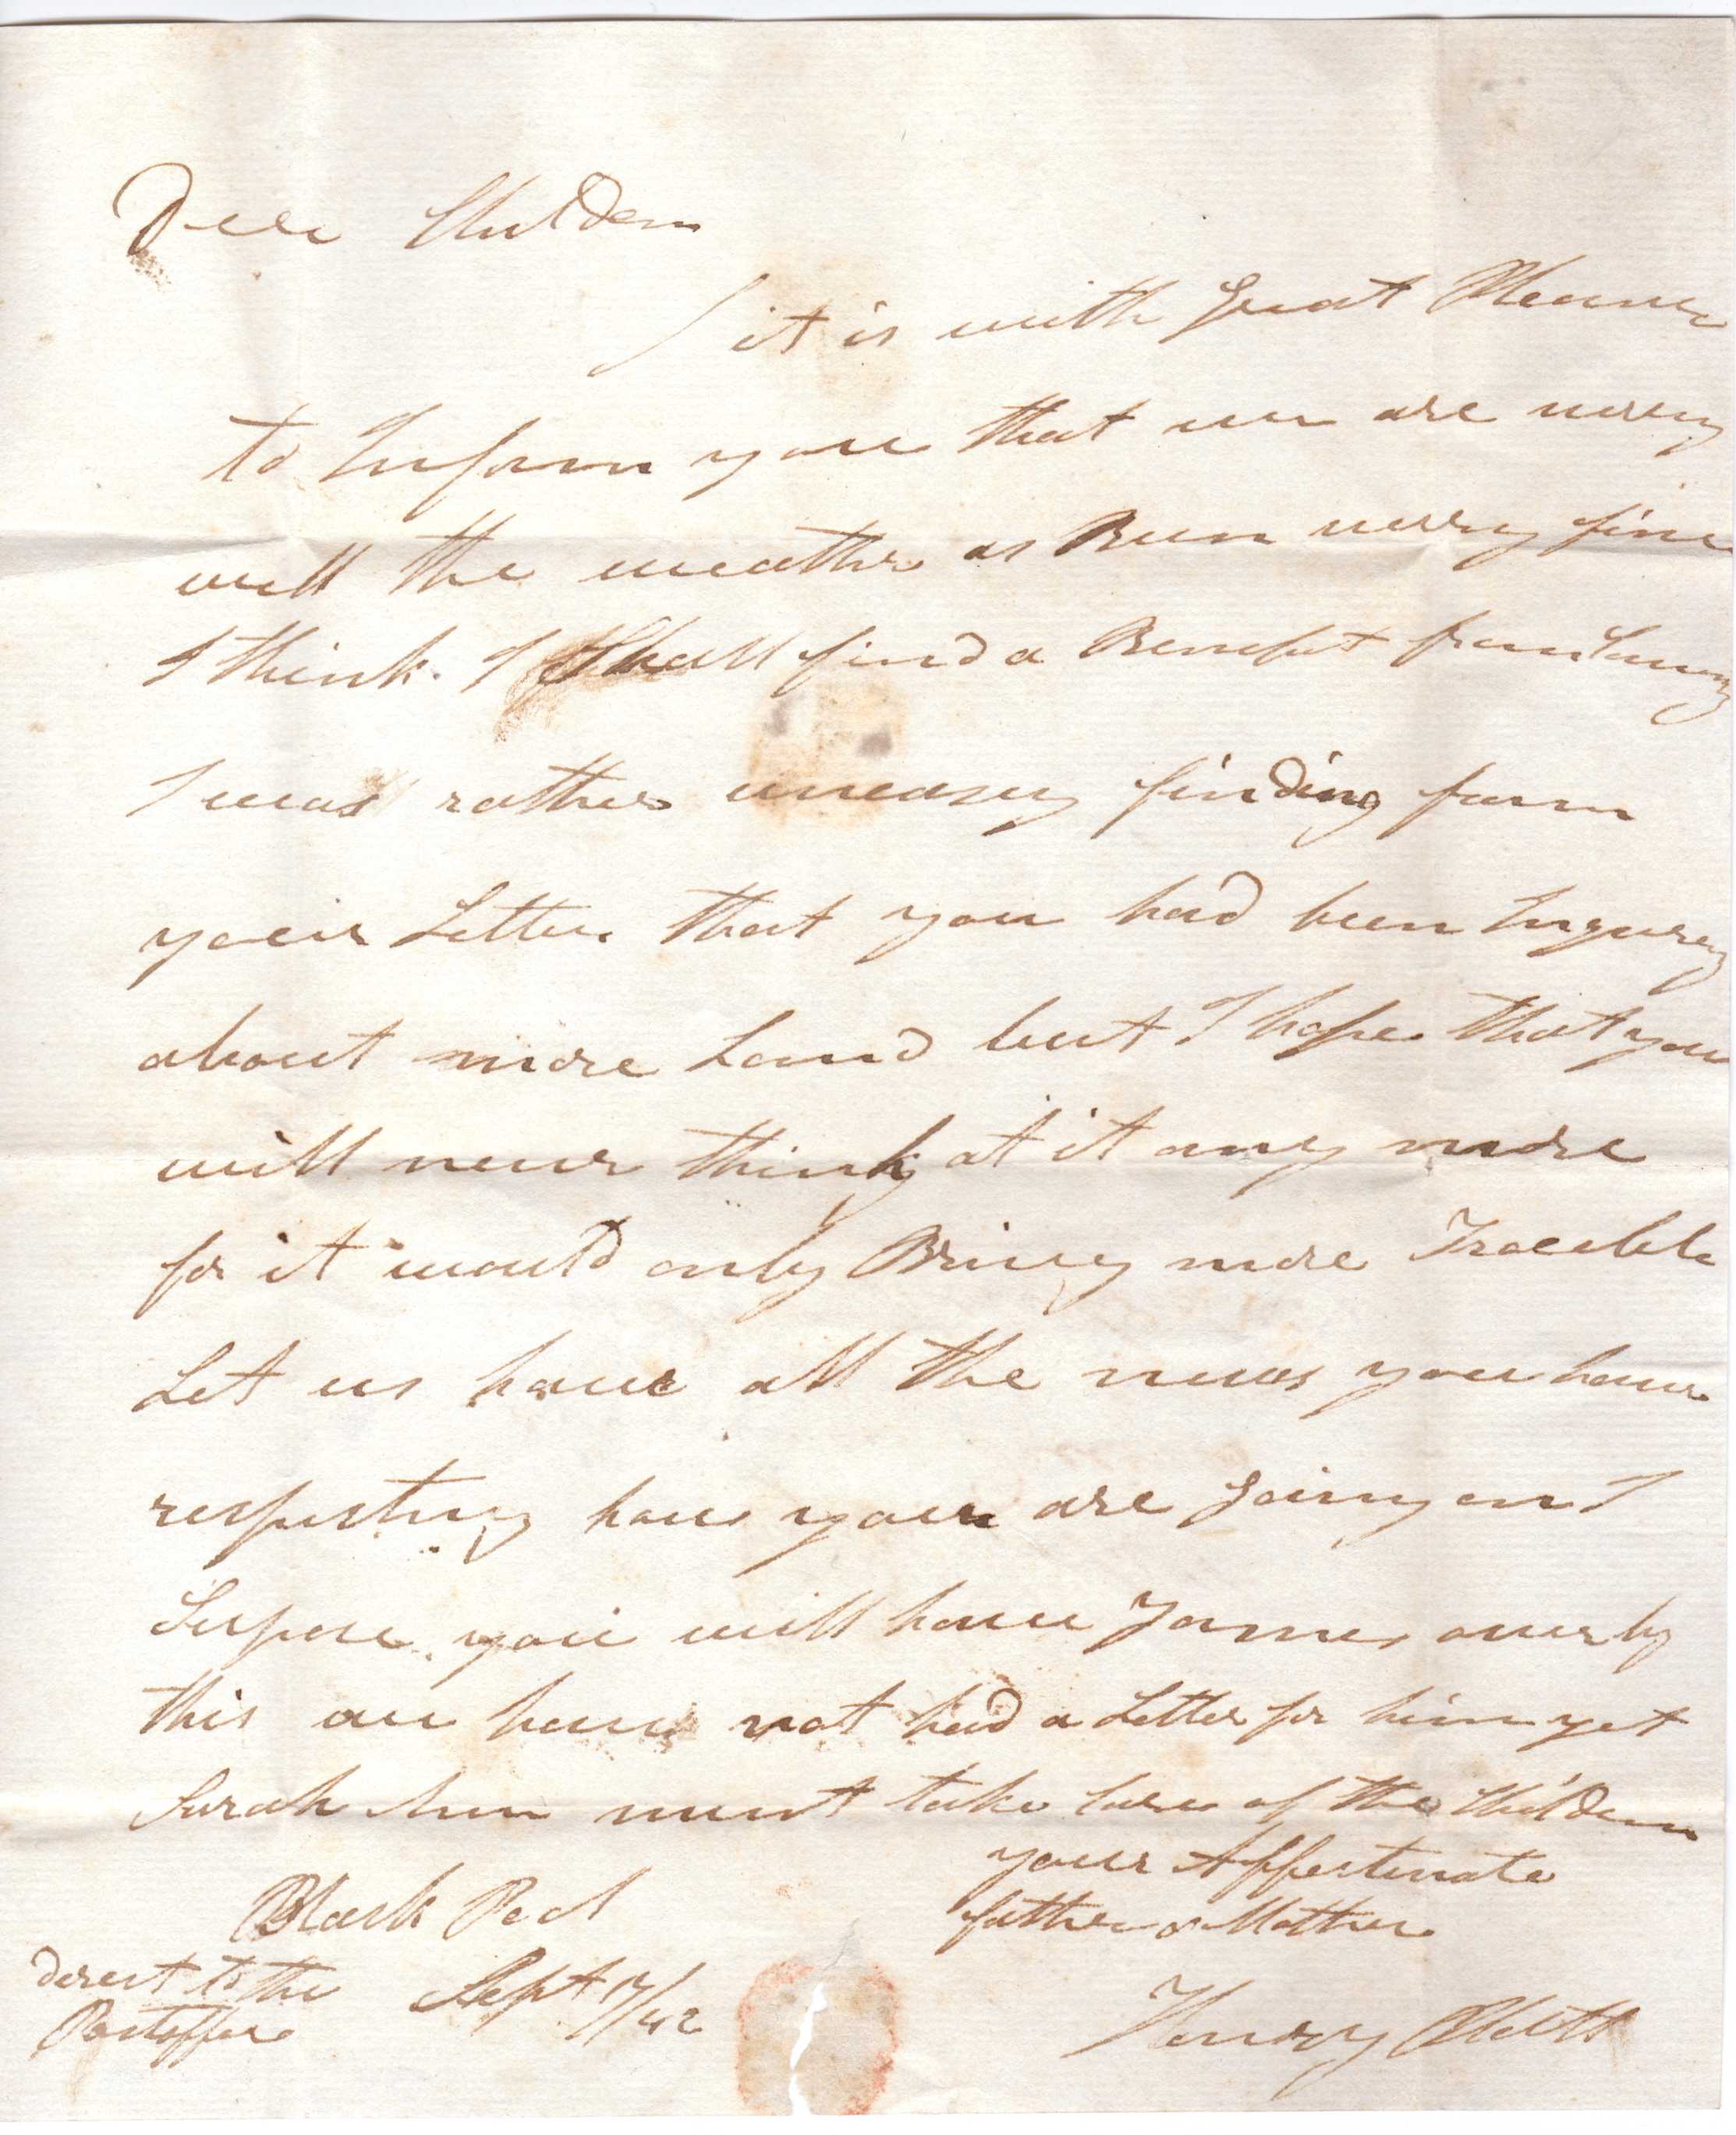 Dear Children
it is with great Pleasure
to Inform you that we are verry
well the weather as Been verry fine
I think I Shall find a Benefit from
I was rather uneasy finding from
your Letter that you had been Inqureng
about more Land but I hope that you
will never think at it any more
for it would only Bring more Trouble
Let us have all the news you have
respecting how you are going on I
Supose you will have James over by
this we have not had a Letter for him yet
Sarah Ann must take care of the Children
your Affectinate
father & Mother
Black Pool
derect to the
Postoffice
Sept 17/42
Henry Platt